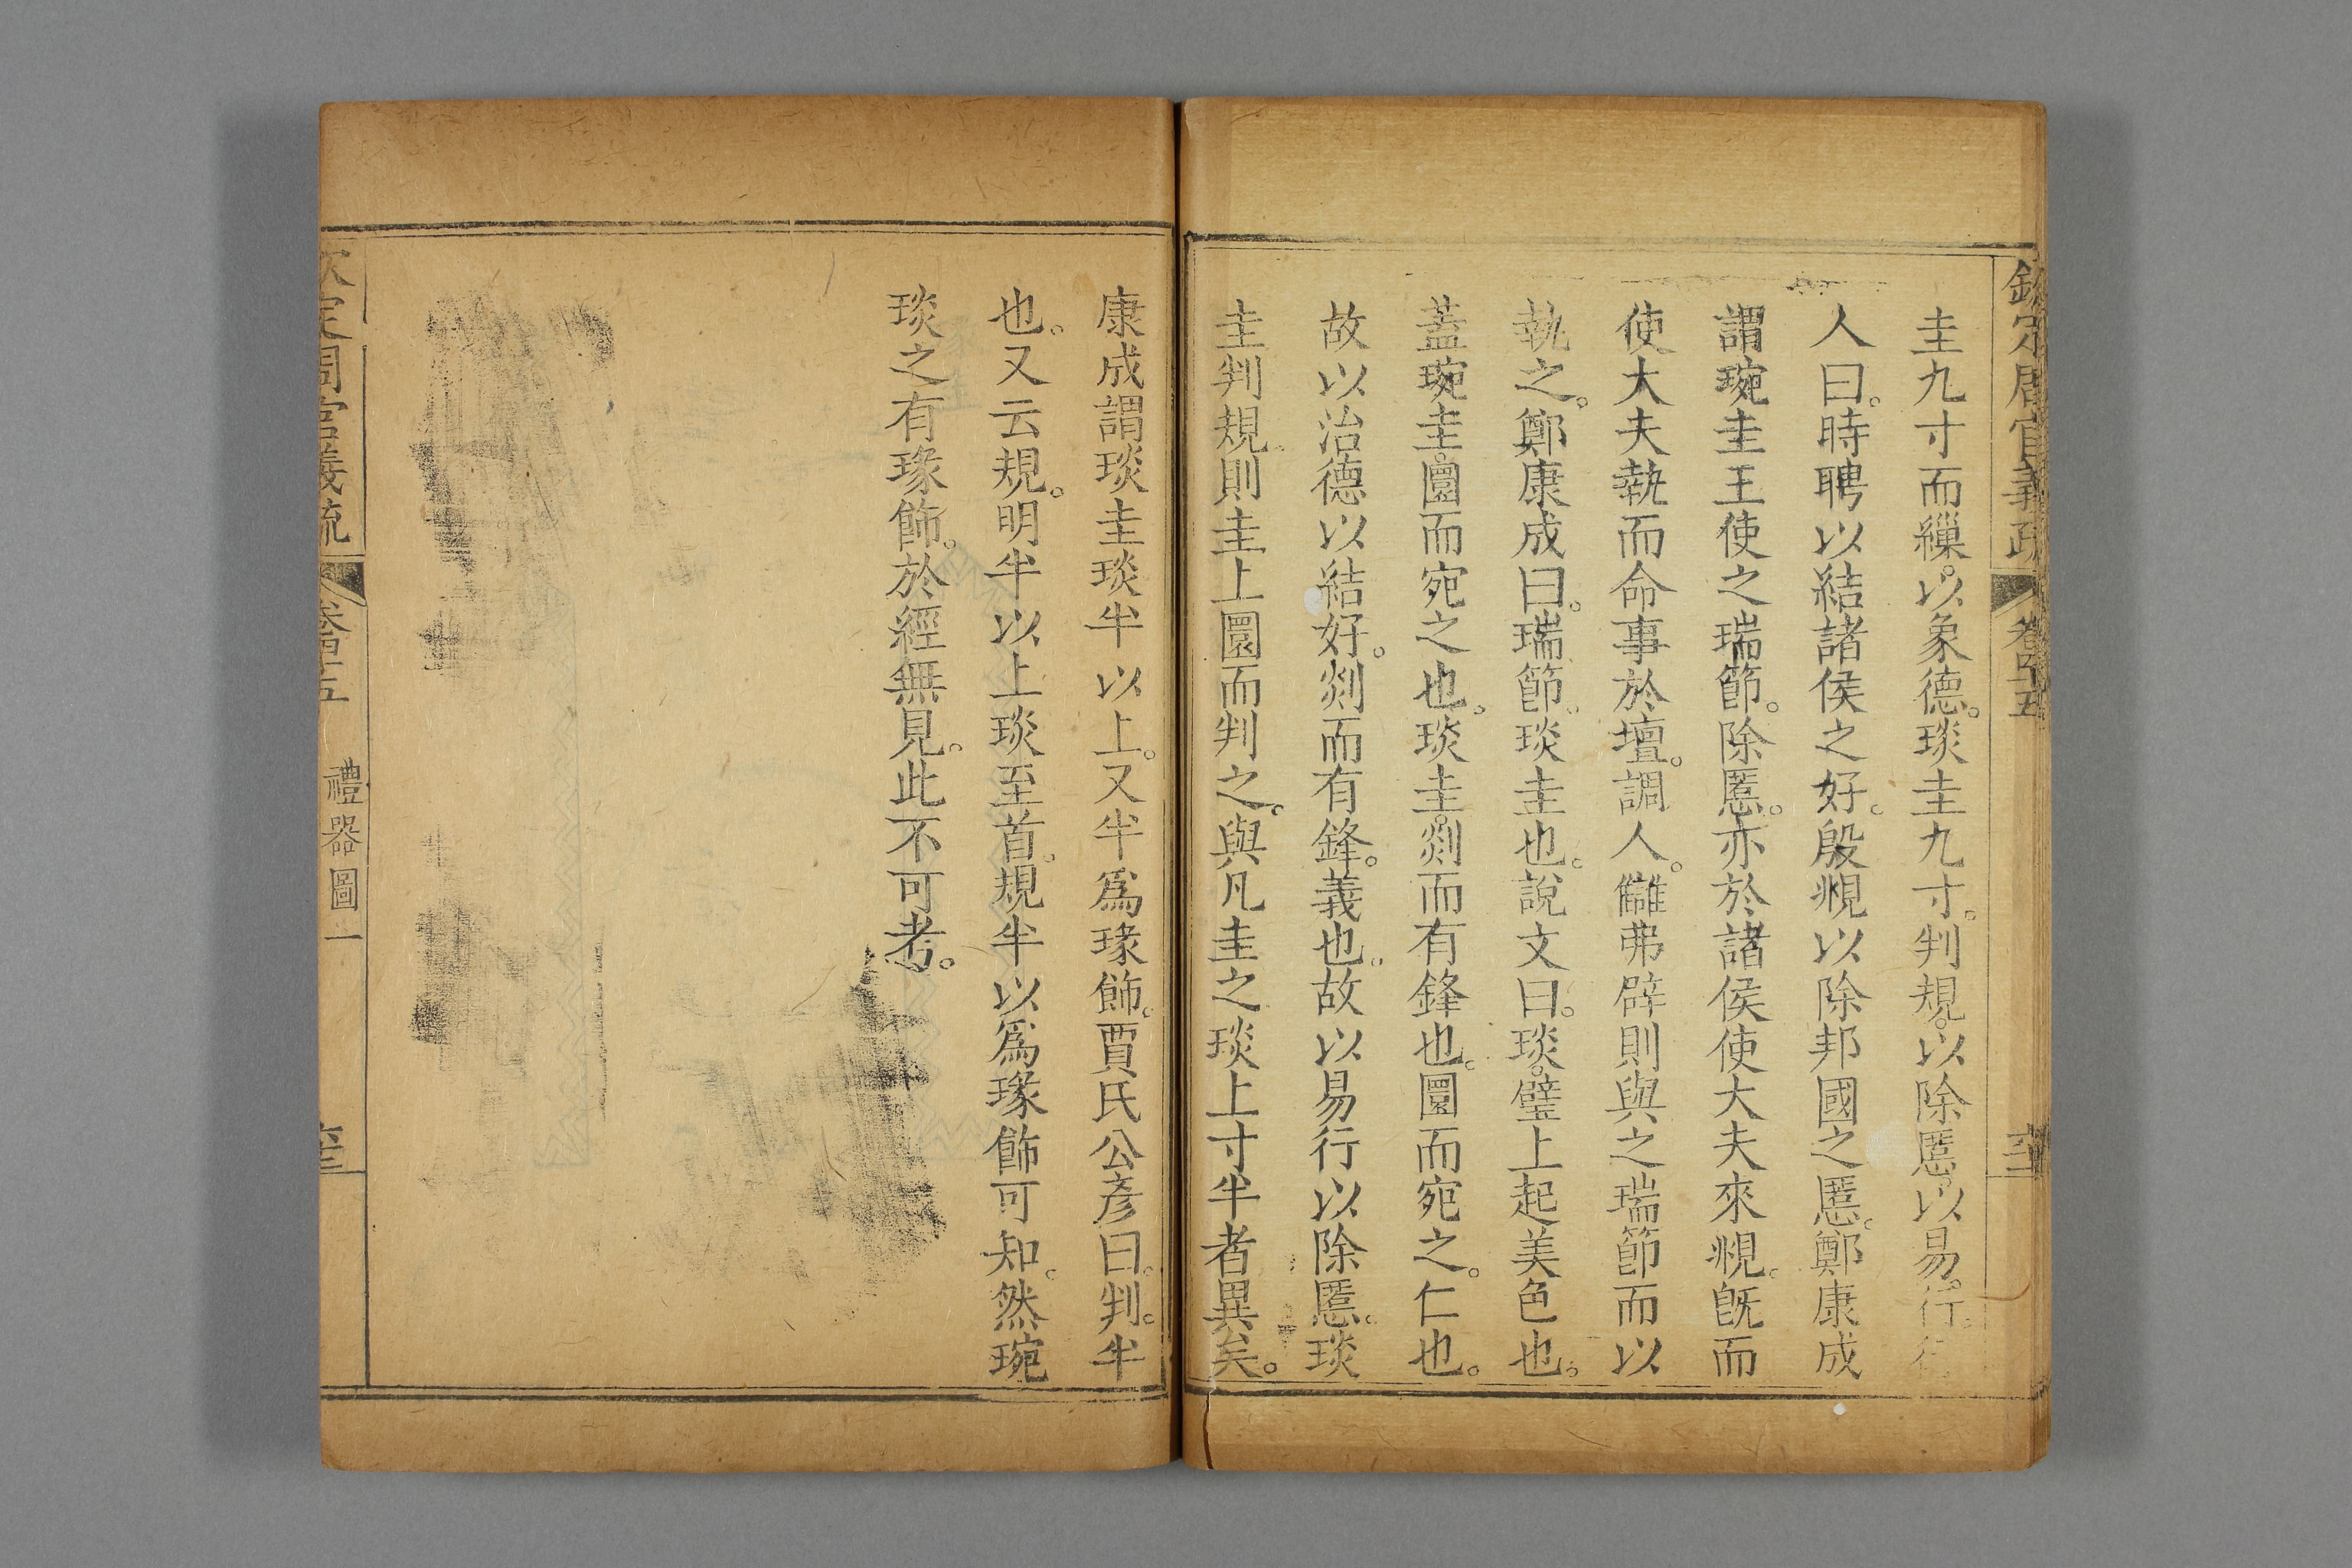 欽定周官義疏 卷四十五
圭九寸而繅。以象德。琰圭九寸。判規。以除慝。以易行。
人曰。時聘以結諸侯之好。殷覜以除邦國之慝。鄭康成
謂琬圭王使之瑞節。除慝。亦於諸侯使大夫來覜。旣而
使大夫執而命事於壇。調人。讎弗辟則與之瑞節而以
執之。鄭康成曰。瑞節。琰圭也。說文曰。琰。璧上起美色也。
蓋琬圭。圜而宛之也。琰圭。剡而有鋒也。圜而宛之。仁也。
故以治德以結好。剡而有鋒。義也。故以易行以除慝。琰
圭判規。則圭上圜而判之。與凡圭之琰上寸半者異矣。
康成謂琰圭琰半以上。又半爲瑑飾。賈氏公彥曰。判。半
也。又云規。明半以上琰至首。規半以爲瑑飾可知。然琬
琰之有瑑飾。於經無見。此不可考。
欽定周官義疏 卷四十五 禮器圖一